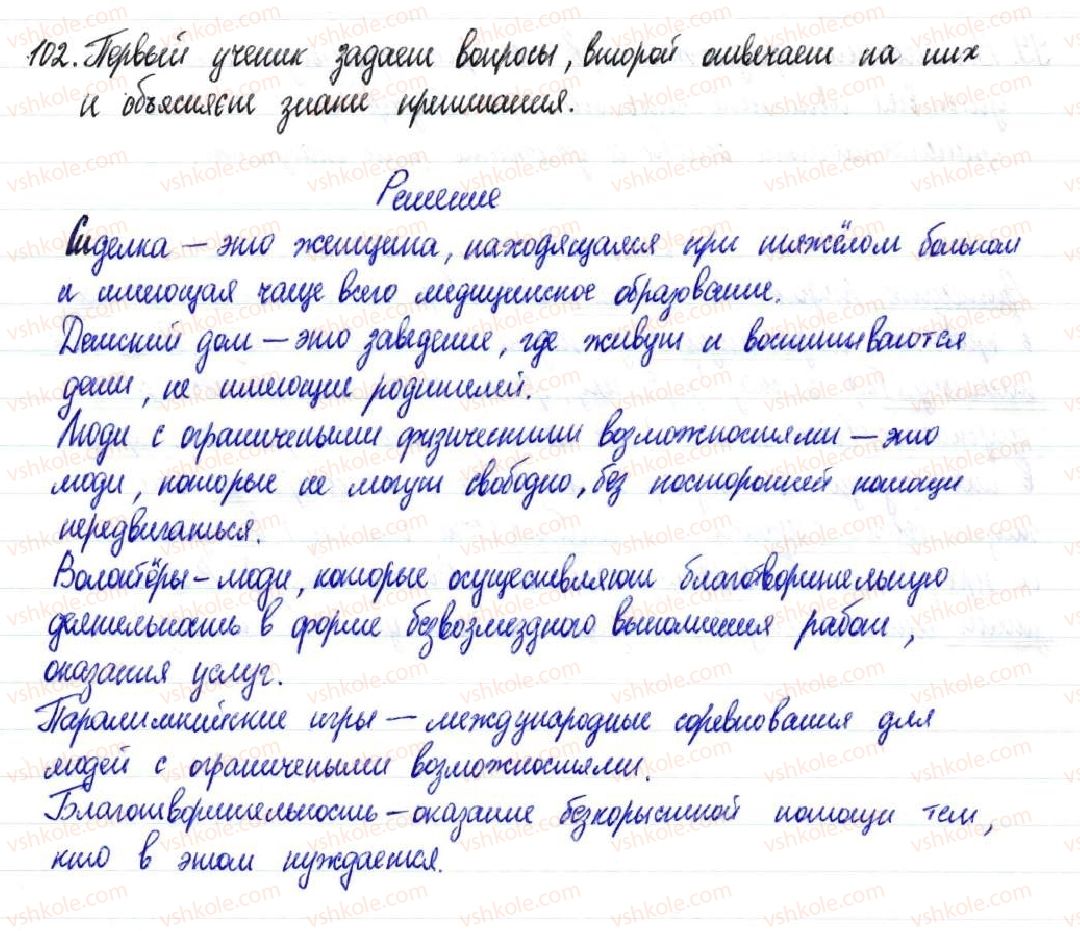 102. Первый ученик задает вопросы, второй отвечает на них
и объясняет знаки препинания.
Решение
Сиделка — это женщина, находящаяся при тяжёлом больном
и имеющая чаще всего медицинское образование.
Детский дом — это заведение, где живут и воспитываются
дети, не имеющие родителей.
Люди с ограничеными физическими возможностями — это
люди, которые не могут свободно, без посторонней помощи
передвигаться.
Волонтёры — люди, которые осуществляют благотворительную
деятельность в форме безвозмездного выполнения работ,
оказания услуг.
Паралимпийские игры — международные соревнования для
людей с ограничеными возможностями.
Благотворительность — оказание безкорыстной помощи тем,
кто в этом нуждается.